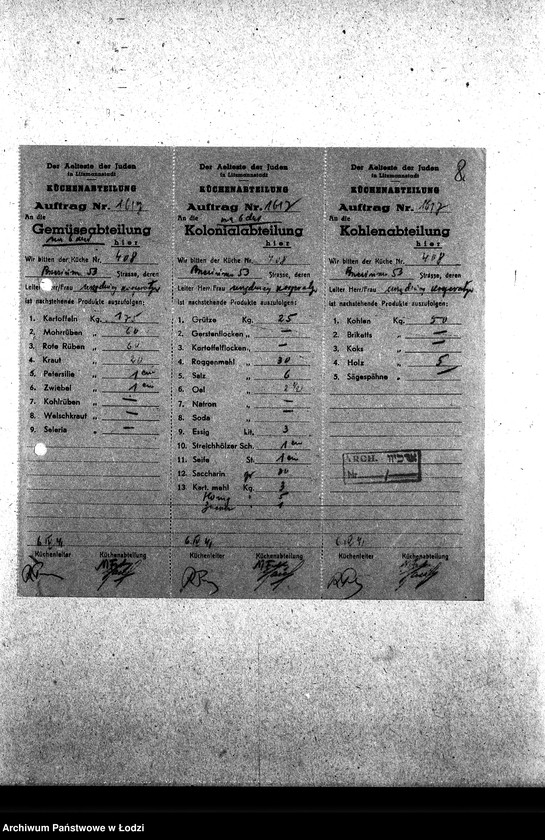 8.
Der Aelteste der Juden
in Litzmannstadt
KÜCHENABTEILUNG
Auftrag Nr. 1617
An die
Gemüseabteilung
hier
Wir bitten der Küche Nr. 408
53 Strasse, deren
Leiter Herr/Frau
ist nachstehende Produkte auszufolgen:
1. Kartoffeln Kg. 175
2. Mohrrüben „ 60
3. Rote Rüben „ 60
4. Kraut „ 20
5. Petersilie „ 1
6. Zwiebel „ 1
7. Kohlrüben „ —
8. Welschkraut „ —
9. Selerie „ —
6. IV 41
Küchenleiter Küchenabteilung
Der Aelteste der Juden
in Litzmannstadt
KÜCHENABTEILUNG
Auftrag Nr. 1617
An die
Kolonialabteilung
hier
Wir bitten der Küche Nr. 408
53 Strasse, deren
Leiter Herr/Frau
ist nachstehende Produkte auszufolgen:
1. Grütze Kg. 25
2. Gerstenflocken „ —
3. Kartoffelflocken „ —
4. Roggenmehl „ 30
5. Salz „ 6
6. Oel „ 2 ½
7. Natron „ —
8. Soda „ —
9. Essig Lit. 3
10. Streichhölzer Sch. 1
11. Seife St. 1
12. Saccharin gr 30
13. Kart. mehl Kg. 3
Honig " 5
" 1
6. IV 41
Küchenleiter Küchenabteilung
Der Aelteste der Juden
in Litzmannstadt
KÜCHENABTEILUNG
Auftrag Nr. 1617
An die
Kohlenabteilung
hier
Wir bitten der Küche Nr. 408
53 Strasse, deren
Leiter Herr/Frau
ist nachstehende Produkte auszufolgen:
1. Kohlen Kg. 50
2. Briketts „ —
3. Koks „ —
4. Holz „ 5
5. Sägespähne „ —
ARCH.
Nr. /
6. IV 41
Küchenleiter Küchenabteilung
Archiwum Państwowe w Łodzi